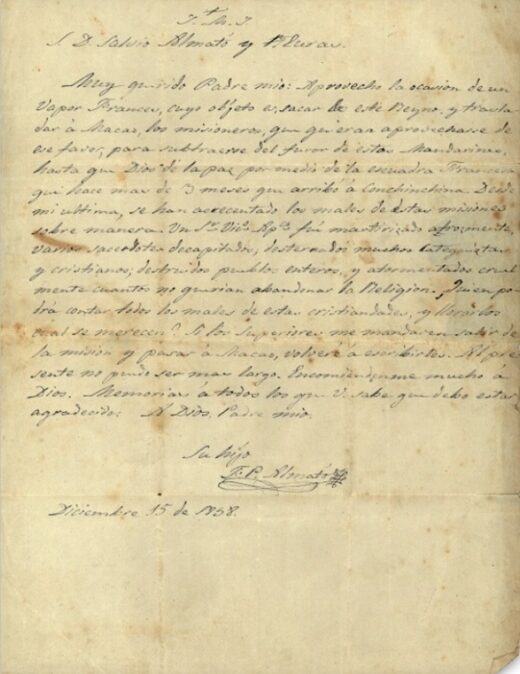 J. M. J.
S. D. Salvio Almató y P. Puras.
Muy querido Padre mio: Aprovecho la ocasion de un
Vapor Frances, cuyo objeto es, sacar de este Reyno, y trasla
dar á Macao, los misioneros, que quieran aprovecharse de
ese favor, para subtraerse del furor de estos Mandarines,
hasta que Dios dé la paz por medio de la escuadra Francesa
que hace mas de 3 meses que arribó á Conchinchina. Desde
mi ultima, se han acrecentado los males de estas misiones
sobre manera. Un Sr. Vico. Apco. fué martirizado atrozmente,
varios sacerdotes decapitados, desterrados muchos catequistas
y cristianos; destruidos pueblos enteros, y atormentados cruel
mente cuantos no querian abandonar la Religion. ¿Quien po
drá contar todos los males de estas cristiandades, y llorarlos
cual se merecen? Si los Superiores me mandaren salir de
la mision y pasar á Macao, volveré á escribirles. Al pre
sente no puedo ser mas largo. Encomiendenme mucho á
Dios. Memorias á todos los que V. sabe que debo estar
agradecido: A Dios, Padre mio.
Su hijo
F. P. Almató
Diciembre 15 de 1858.